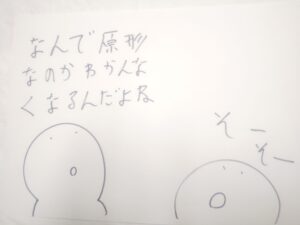 なんで原形
なのかわかんな
くなるんだよね
そー
そー